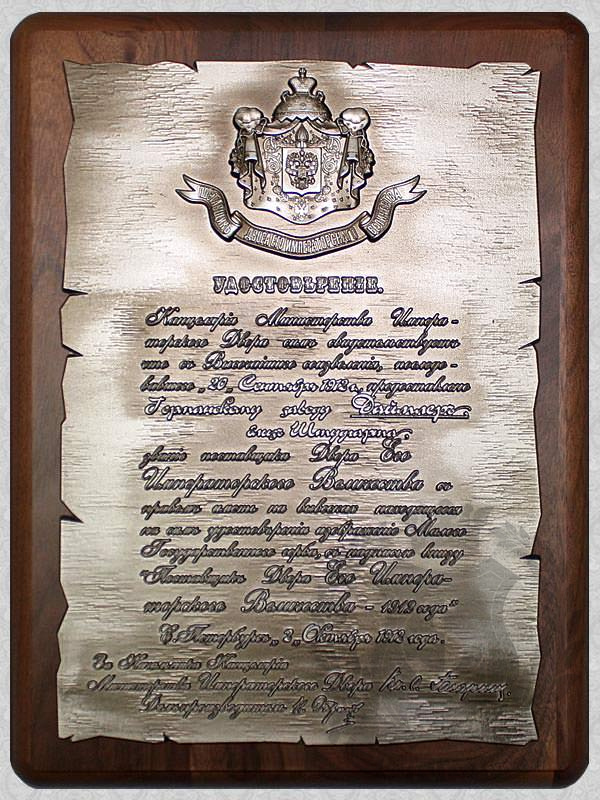 ПОСТАВЩИКЪ ДВОРА ЕГО ИМПЕРАТОРСКАГО ВЕЛИЧЕСТВА
УДОСТОВѢРЕНІЕ.
Канцелярія Министерства Импера-
торскаго Двора симъ свидетельствуетъ
что съ Высочайшаго соизволенія, последо-
вавшаго „20„ Сентября 1912 г., предоставлено
Германскому заводу Даймлеръ
близъ Штутгарта
званіе поставщика Двора Его
Императорскаго Величества съ
правомъ иметь на вывеске находящееся
на симъ удостоверенiи изображеніе Малаго
Государственнаго герба, съ надписью внизу
"Поставщикъ Двора Его Импера-
торскаго Величества - 1912 года"
С. Петербургъ, „2„ Октября 1912 года.
За Начальника Канцелярiи
Министерства Императорскаго Двора Кн. С.
Делопроизводитель